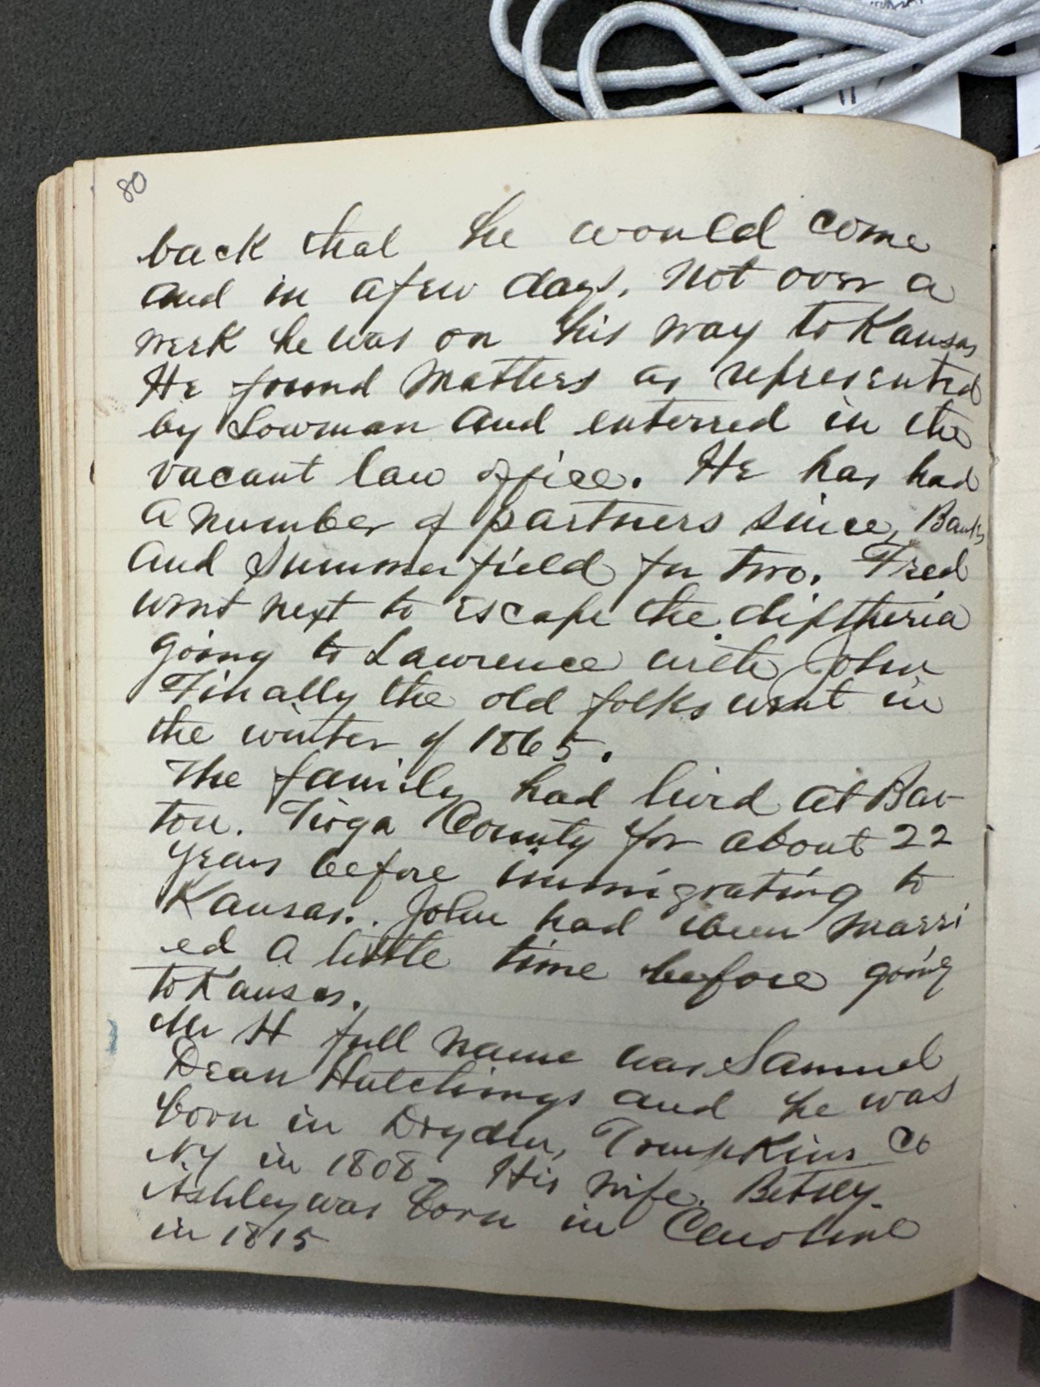 80
back that he would come
and in a few days, not over a
week he was on his way to Kansas
He found matters as represented
by Lowman and enterred in the
vacant law office. He has had
a number of partners since, Banks
and Summerfield for two. Fred
went next to escape the diptheria
going to Lawrence with John
Finally the old folks went in
the winter of 1865.
The family had lived at Bar-
ton. Tioga County for about 22
years before immigrating to
Kansas. John had been marri
ed a little time before going
to Kansas.
Mr H full name was Samuel
Dean Hutchings and he was
born in Dryden, Tompkins Co
NY in 1808. His wife. Betsey
Ashley was born in Caroline
in 1815